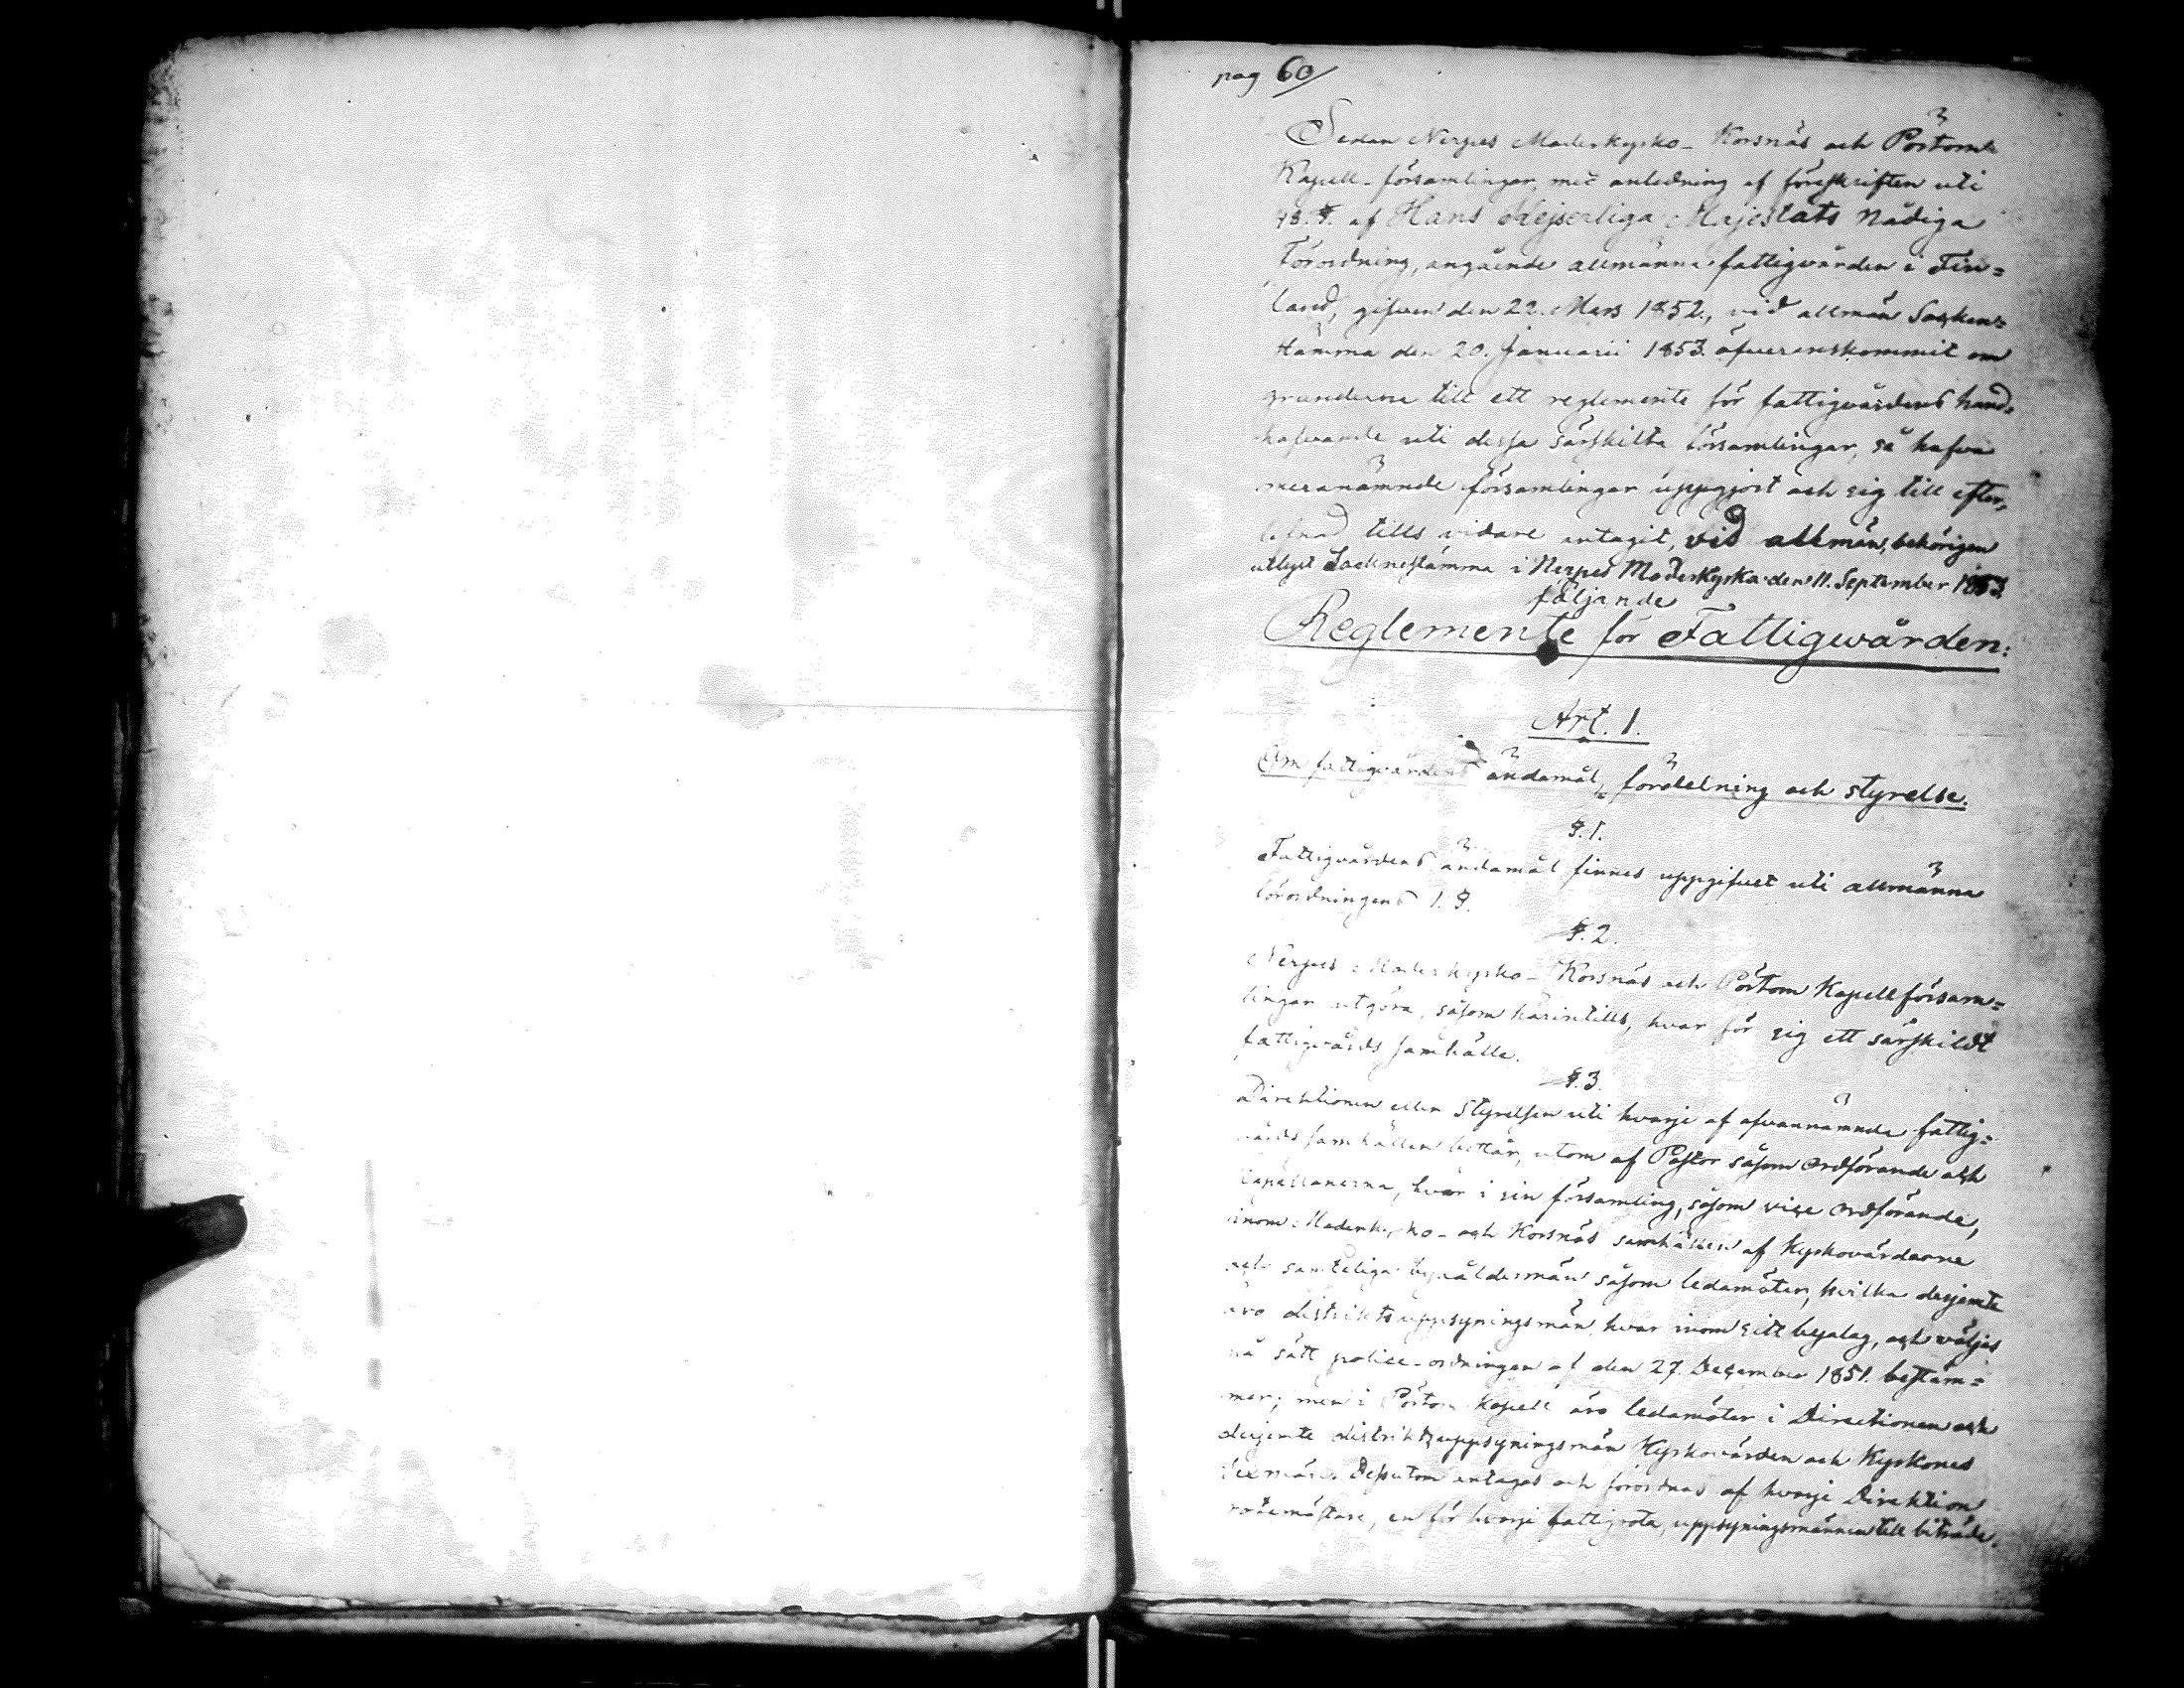 pag 60/
Sedan Nerpes Moderkyrko- Korsnäs och Pörtom
Kapell-församlingar, med anledning af föreskriften uti
48.§. af Hans Kejserliga Majestäts Nådiga
Förordning, angående allmänna fattigvården i Fin=
land, gifven den 22. Mars 1852., vid allmän Socken=
stämma den 20. Januarii 1853. öfverenskommit om
grunderne till ett reglemente för fattigvårdens hand=
hafvande uti dessa särskilta församlingar, så hafva
meranämnde församlingar uppgjort och sig till efter,
lefnad tills vidare antagit, vid allmän, behörigen
utlyst Socknestämma i Nerpes Moderkyrka den 11. September 1853.
följande
Reglemente för Fattigwården:
Art. 1.
Om fattigvårdens ändamål, fördelning och styrelse.
§.1.
Fattigvårdens ändamål finnes uppgifvet uti allmänna
förordningens 1.§.
§.2.
Nerpes Moderkyrko- Korsnäs och Pörtom Kapellförsam=
lingar utgöra, såsom härintills, hvar för sig ett särskildt
fattigvårds samhälle.
§.3.
Direktionen eller Styrelsen uti hvarje af ofvannämnda fattig=
vårds samhällen består, utom af Pastor såsom Ordförande och
Capellanerna, hvar i sin församling, såsom vice Ordförande,
inom Moderkyrko- och Korsnäs samhällen af Kyrkovärdarne
och samteliga byaåldermän såsom ledamöter, hvilka desjemte
äro distriktsuppsyningsmän, hvar inom sitt byalag, och väljas
på sätt police-ordningen af den 27. December 1851. bestäm=
mer; men i Pörtom Kapell äro ledamöter i Directionen och
desjemte distriktsuppsyningsmän Kyrkovärden och Kyrkones
sexmän. Dessutom antagas och förordnas af hvarje Direktion
rotemästare, en för hvarje fattigrota, uppsyningsmännen till biträde.